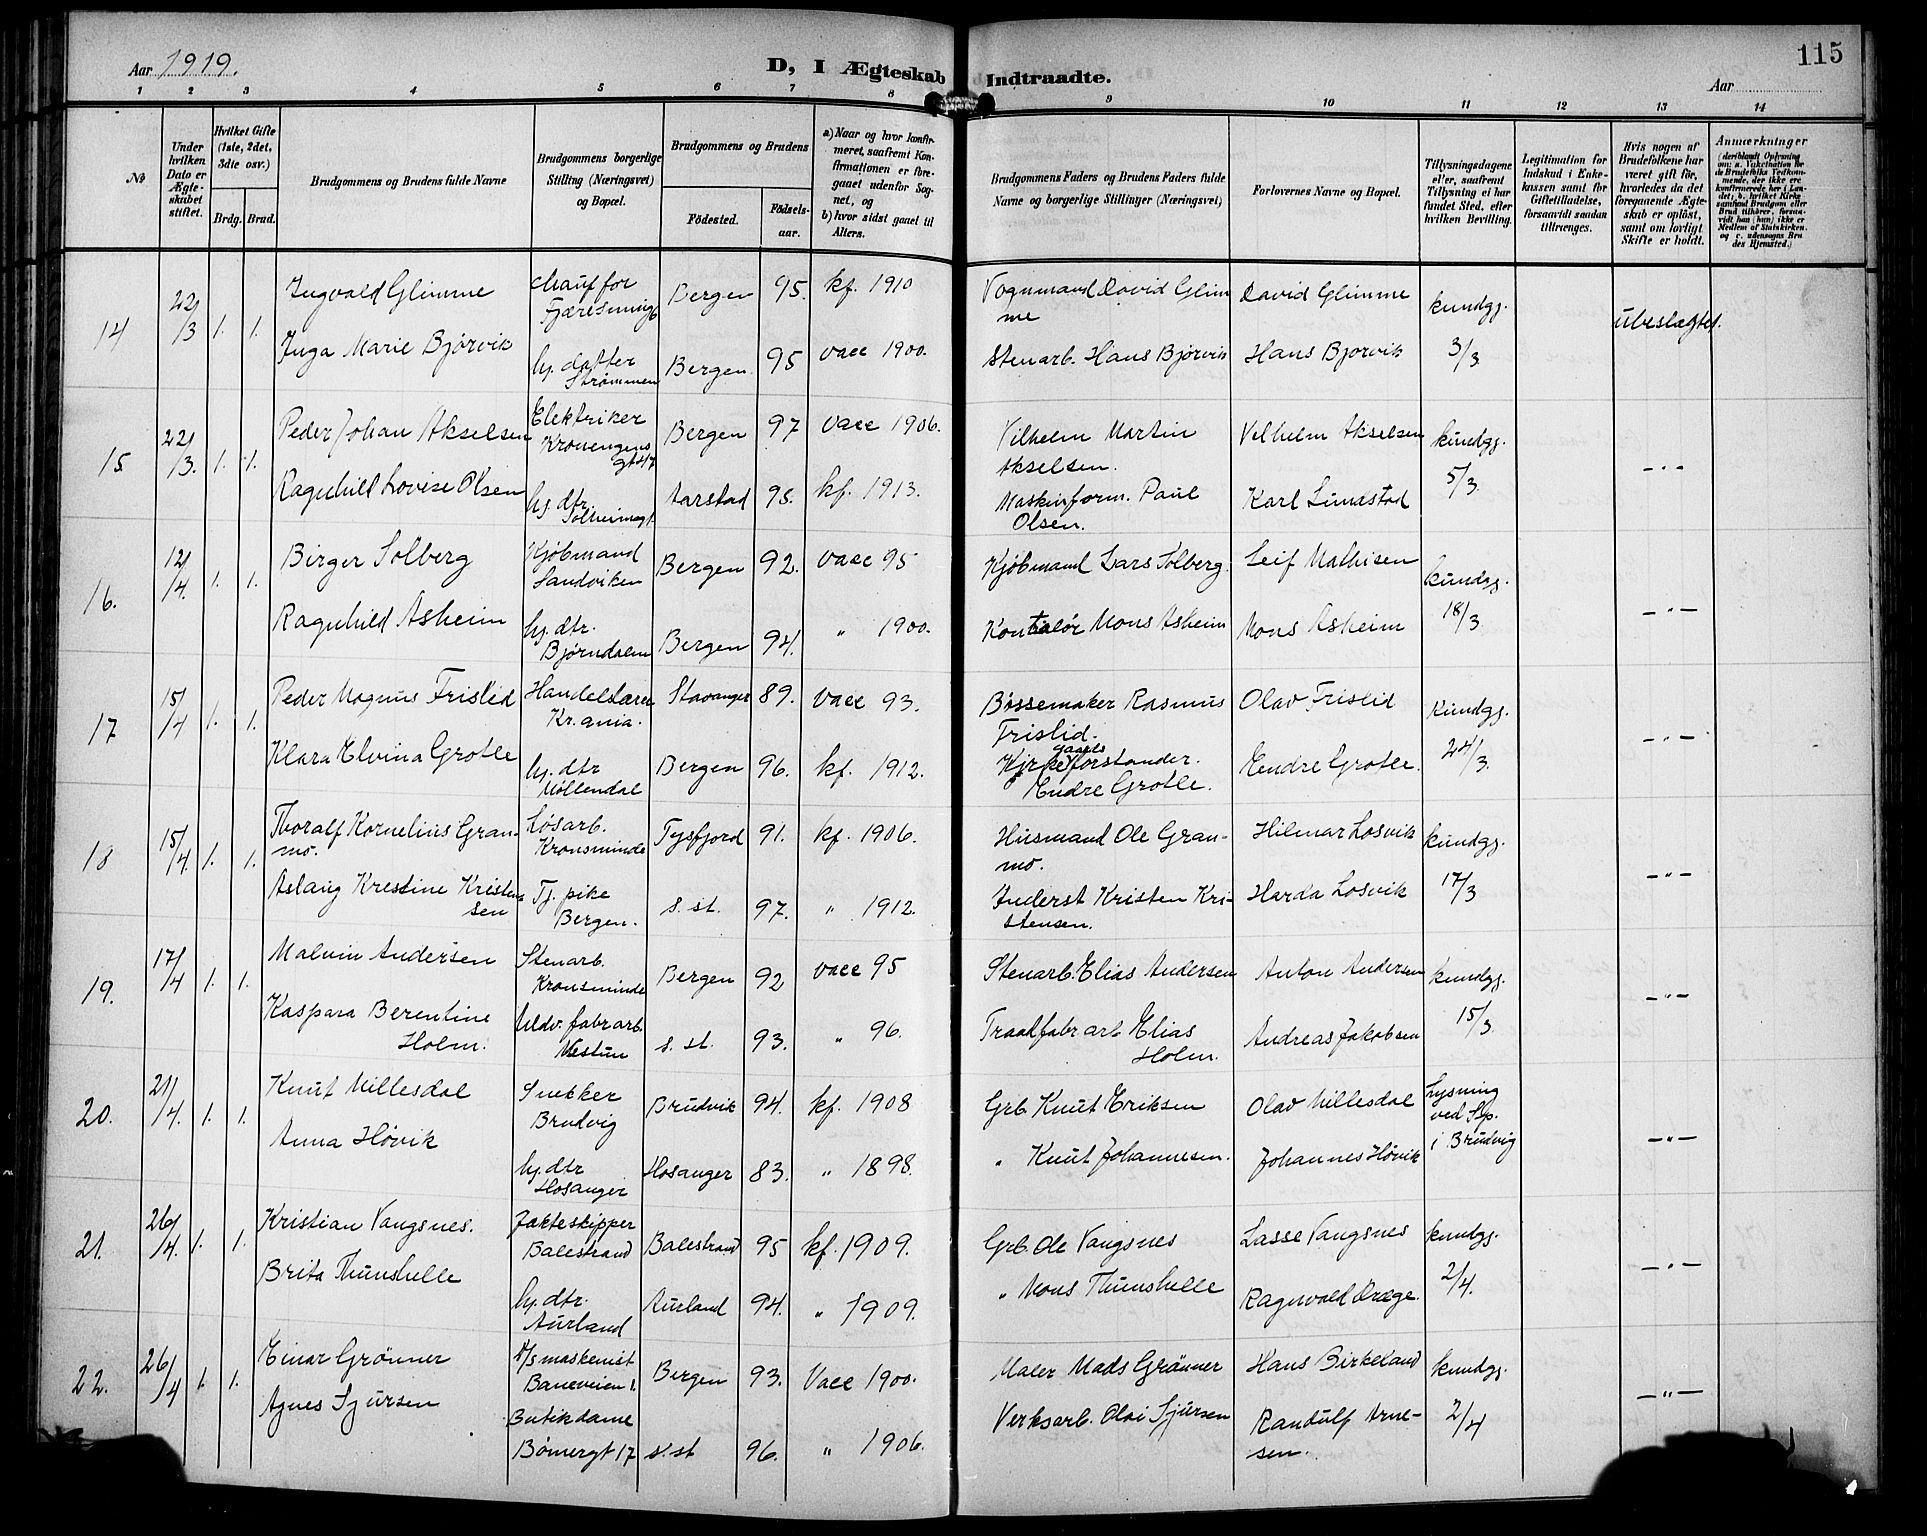 Aar 1919.
D, I Ægteskab Indtraadte.
Aar
115
1 2 3 4 5 6 7 8 9 10 11 12 13 14
No
Under hvilken Dato er Ægteskabet stiftet.
Hvilket Gifte (1ste, 2det, 3die osv.)
Brdg. Brud.
Brudgommens og Brudens fulde Navne
Brudgommens borgerlige Stilling (Næringsvei) og Bopæl.
Brudgommens og Brudens
Födested.
Födselsaar.
a) Naar og hvor konfirmeret, saafremt Konfirmationen er foregaaet udenfor Sognet, og
b) hvor sidst gaaet til Alters.
Brudgommens Faders og Brudens Faders fulde Navne og borgerlige Stillinger (Næringsvei)
Forlovernes Navne og Bopæl.
Tillysningsdagene eller, saafremt Tillysning ei har fundet Sted, efter hvilken Bevilling.
Legitimation for Indskud i Enkekassen samt for Giftetilladelse, forsaavidt saadan tiltrænges.
Hvis nogen af Brudefolkene har været gift för, hvorledes da det foregaaende Ægteskab er oplöst, samt om lovligt Skifte er holdt.
Anmærkninger
(deriblandt Oplysning om: a. Vakcination for de Brudefolks Vedkommende, der ikke ere konfirmerede her i Landet; b. hvilket Kirkesamfund Brudgom eller Brud tilhører, forsaavidt han (hun) ikke er Medlem af Statskirken, og c. udensogns Brudes Hjemsted.)
14 22/3 1. 1. Ingvald Glimme chauffør Fjæresmug 6 Bergen 95. kf. 1910 Vognmand David Glimme David Glimme kundgj. 3/3 ubeslægtet.
Inga Marie Bjørvik hj. datter Strømmen Bergen 95 vacc 1900. Stenarb. Hans Bjørvik Hans Bjørvik
15 22/3. 1. 1. Peder Johan Akselsen Elektriker Kronengens gt 47 Bergen 97 vacc 1906. Vilhelm Martin Akselsen. Vilhelm Akselsen kundgj. 5/3. -"-
Ragnhild Lovise Olsen hj. dtr. Solheimsgt. Aarstad 95. kf. 1913. Maskinform. Paul Olsen. Karl Lundstad
16. 12/4. 1. 1. Birger Solberg Kjøbmand Sandviken Bergen 92. vacc 95 Kjøbmand Lars Solberg. Leif Mathisen kundgj. 18/3 -"-
Ragnhild Asheim hj. dtr. Bjørndalen Bergen 94. " 1900. Kontrolør Mons Asheim Mons Asheim
17 15/4 1. 1. Peder Magnus Fristid Handelslærer Kr.ania. Stavanger 89. vacc 93. Bøssemaker Rasmus Fristid. Olav Fristid Kundgj. 24/3. -"-
Klara Elvina Grotle hj. dtr Møllendal Bergen 96. kf. 1912. Kirkegaardsforstander. Endre Grotle. Endre Grotle.
18 15/4. 1. 1. Thoralf Kornelius Granmo. Løsarb. Kronsminde Tysfjord 91. kf. 1906. Husmand Ole Granmo. Hilmar Losvik kundgj. 17/3 -"-
Aslaug Krestine Kristensen Tj. pike Bergen. s. st. 97. " 1912. Inderst Kristen Kristensen. Harda Losvik
19. 17/4 1. 1. Malvin Andersen Stenarb. Kronsminde Bergen 92 vacc 95 Stenarb. Elias Andersen Anton Andersen kundgj. 15/3 -"-
Kaspara Berentine Holm. Uldv. fabr arb. Nestun s. st. 93. " 96. Traadfabr arb Elias Holm. Andreas Jakobsen
20. 21/4. 1. 1. Knut Millesdal Snekker Brudvig Brudvik 94. kf. 1908 Grb. Knut Eriksen Olav Millesdal Lysning ved Sp. i Brudvig -"-
Anna Høvik hj. dtr Hosanger Hosanger 83. " 1898. " Knut Johannesen. Johannes Høvik
21. 26/4. 1. 1. Kristian Vangsnes. Jakteskipper Balestrand Balestrand 95 kf. 1909. Grb. Ole Vangsnes Lasse Vangsnes kundgj. 2/4. -"-
Brita Thunshelle hj. dtr. Aurland Aurland 94. " 1909. " Mons Thunshelle Ragnvald Dræge.
22. 26/4 1. 1. Einar Grønner D/S maskenist Baneveien 1. Bergen 93. Vacc 1900. Maler Mads Grønner Hans Birkeland kundgj. 2/4 -"-
Agnes Sjursen Butikdame Bømergt 17 s. st 96. " 1906. Verksarb. Olai Sjursen Randulf Arnesen.